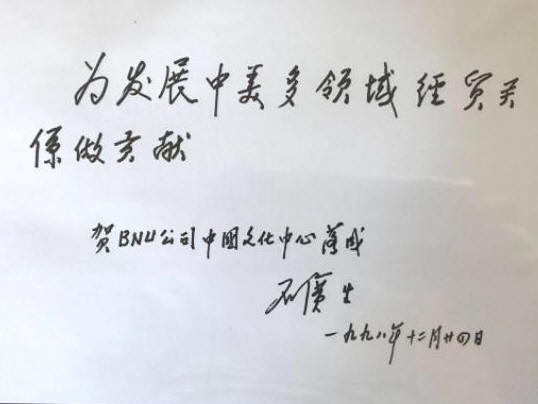 为发展中美多领域经贸关
係做贡献
贺BNU公司中國文化中心落成
石廣生
一九九八年十二月廿四日